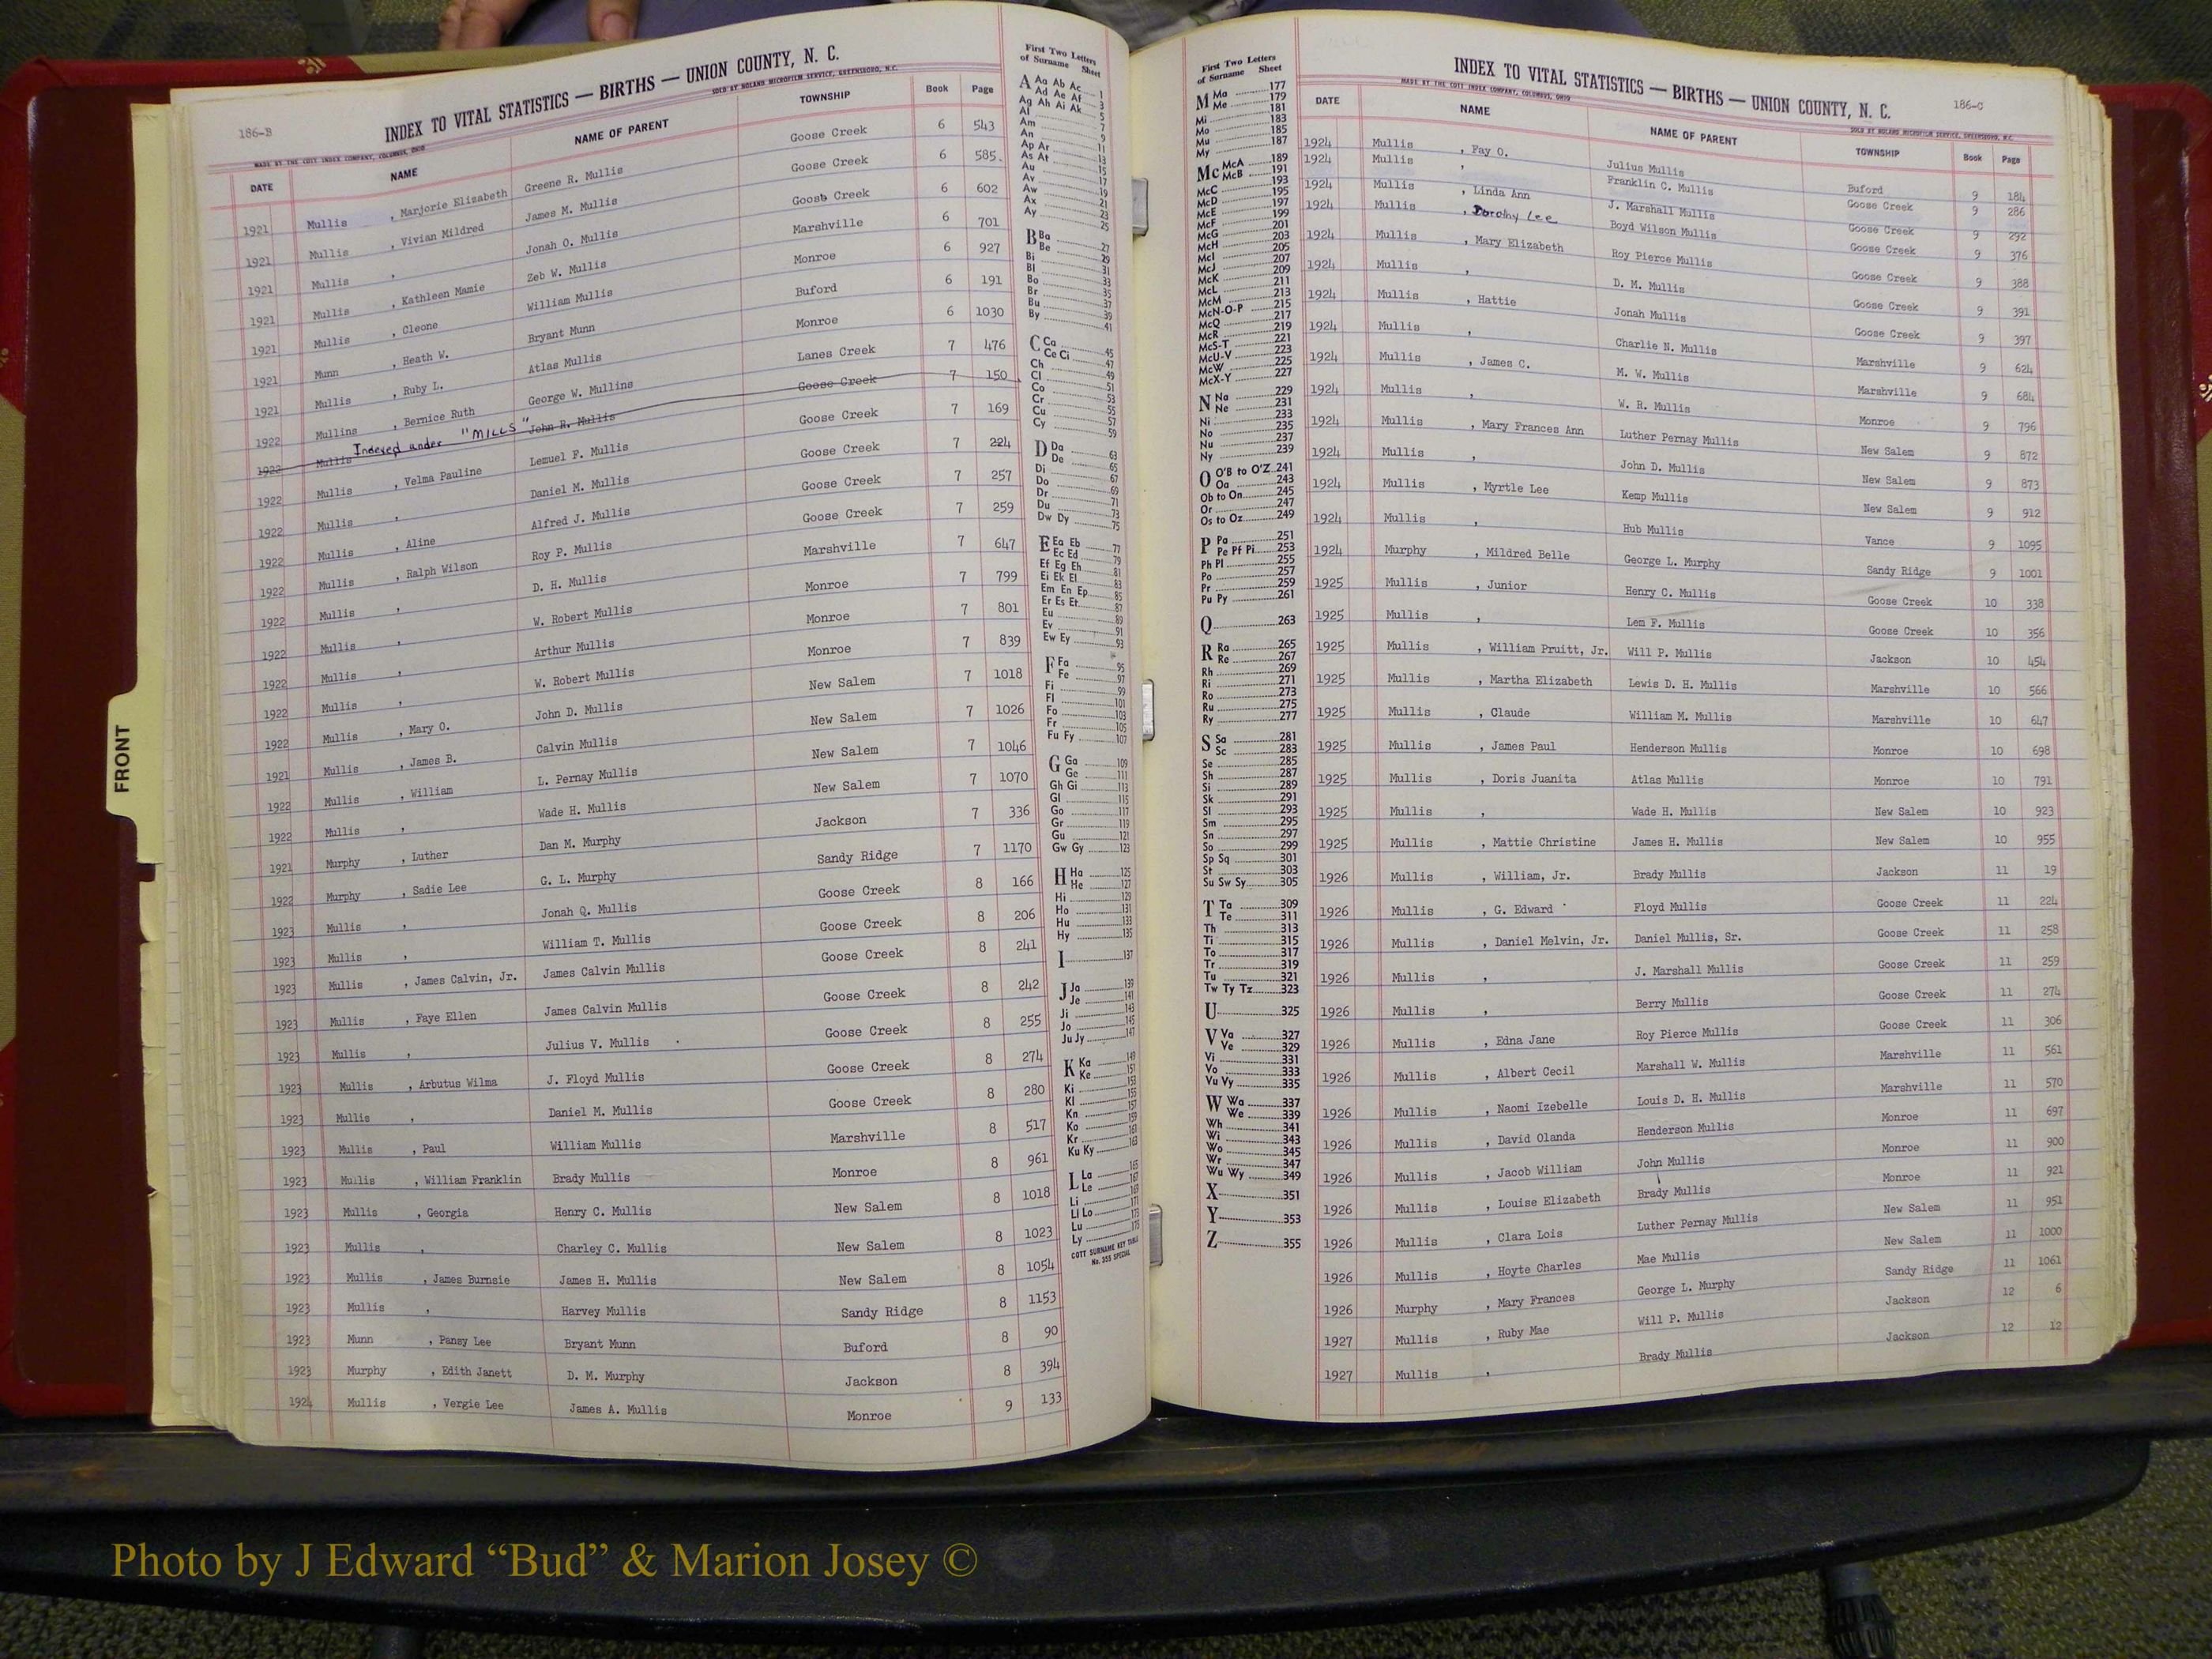 186-B
INDEX TO VITAL STATISTICS — BIRTHS — UNION COUNTY, N. C.
MADE BY THE COTT INDEX COMPANY, COLUMBUS, OHIO SOLD BY NOLAND MICROFILM SERVICE, GREENSBORO, N.C.
DATE NAME NAME OF PARENT TOWNSHIP Book Page
1921 Mullis , Marjorie Elizabeth Greene R. Mullis Goose Creek 6 543
1921 Mullis , Vivian Mildred James M. Mullis Goose Creek 6 585
1921 Mullis , Jonah O. Mullis Goose Creek 6 602
1921 Mullis , Kathleen Mamie Zeb W. Mullis Marshville 6 701
1921 Mullis , Cleone William Mullis Monroe 6 927
1921 Munn , Heath W. Bryant Munn Buford 6 191
1921 Mullis , Ruby L. Atlas Mullis Monroe 6 1030
1922 Mullins , Bernice Ruth George W. Mullins Lanes Creek 7 476
Indexed under "MILLS"
1922 Mullis John R. Mullis Goose Creek 7 150
1922 Mullis , Velma Pauline Lemuel F. Mullis Goose Creek 7 169
1922 Mullis , Daniel M. Mullis Goose Creek 7 224
1922 Mullis , Aline Alfred J. Mullis Goose Creek 7 257
1922 Mullis , Ralph Wilson Roy P. Mullis Goose Creek 7 259
1922 Mullis , D. H. Mullis Marshville 7 647
1922 Mullis , W. Robert Mullis Monroe 7 799
1922 Mullis , Arthur Mullis Monroe 7 801
1922 Mullis , W. Robert Mullis Monroe 7 839
1922 Mullis , Mary O. John D. Mullis New Salem 7 1018
1921 Mullis , James B. Calvin Mullis New Salem 7 1026
1922 Mullis , William L. Pernay Mullis New Salem 7 1046
1922 Mullis , Wade H. Mullis New Salem 7 1070
1921 Murphy , Luther Dan M. Murphy Jackson 7 336
1922 Murphy , Sadie Lee G. L. Murphy Sandy Ridge 7 1170
1923 Mullis , Jonah Q. Mullis Goose Creek 8 166
1923 Mullis , William T. Mullis Goose Creek 8 206
1923 Mullis , James Calvin, Jr. James Calvin Mullis Goose Creek 8 241
1923 Mullis , Faye Ellen James Calvin Mullis Goose Creek 8 242
1923 Mullis , Julius V. Mullis Goose Creek 8 255
1923 Mullis , Arbutus Wilma J. Floyd Mullis Goose Creek 8 274
1923 Mullis , Daniel M. Mullis Goose Creek 8 280
1923 Mullis , Paul William Mullis Marshville 8 517
1923 Mullis , William Franklin Brady Mullis Monroe 8 961
1923 Mullis , Georgia Henry C. Mullis New Salem 8 1018
1923 Mullis , Charley C. Mullis New Salem 8 1023
1923 Mullis , James Burnsie James H. Mullis New Salem 8 1054
1923 Mullis , Harvey Mullis Sandy Ridge 8 1153
1923 Munn , Pansy Lee Bryant Munn Buford 8 90
1923 Murphy , Edith Janett D. M. Murphy Jackson 8 394
1924 Mullis , Vergie Lee James A. Mullis Monroe 9 133
First Two Letters
of Surname Sheet
A Aa Ab Ac 1
Ad Ae Af 3
Ag Ah Ai Ak 5
Al 7
Am 9
An 11
Ap Ar 13
As At 15
Au 17
Av 19
Aw 21
Ax 23
Ay 25
B Ba 27
Be 29
Bi 31
Bl 33
Bo 35
Br 37
Bu 39
By 41
C Ca 45
Ce Ci 47
Ch 49
Cl 51
Co 53
Cr 55
Cu 57
Cy 59
D Da 63
De 65
Di 67
Do 69
Dr 71
Du 73
Dw Dy 75
E Ea Eb 77
Ec Ed 79
Ef Eg Eh 81
Ei Ek El 83
Em En Ep 85
Er Es Et 87
Eu 89
Ev 91
Ew Ey 93
F Fa 95
Fe 97
Fi 99
Fl 101
Fo 103
Fr 105
Fu Fy 107
G Ga 109
Ge 111
Gh Gi 113
Gl 115
Go 117
Gr 119
Gu 121
Gw Gy 123
H Ha 125
He 127
Hi 129
Ho 131
Hu 133
Hy 135
I 137
J Ja 139
Je 141
Ji 143
Jo 145
Ju Jy 147
K Ka 149
Ke 151
Ki 153
Kl 155
Kn 157
Ko 159
Kr 161
Ku Ky 163
L La 165
Le 167
Li 169
Ll Lo 171
Lu 173
Ly 175
COTT SURNAME KEY TABLE
No. 355 SPECIAL
First Two Letters
of Surname Sheet
M Ma 177
Me 179
Mi 181
Mo 183
Mu 185
My 187
Mc McA 189
McB 191
McC 193
McD 195
McE 197
McF 199
McG 201
McH 203
McI 205
McJ 207
McK 209
McL 211
McM 213
McN-O-P 215
McQ 217
McR 219
McS-T 221
McU-V 223
McW 225
McX-Y 227
N Na 229
Ne 231
Ni 233
No 235
Nu 237
Ny 239
O O'B to O'Z 241
Oa 243
Ob to On 245
Or 247
Os to Oz 249
P Pa 251
Pe Pf Pi 253
Ph Pl 255
Po 257
Pr 259
Pu Py 261
Q 263
R Ra 265
Re 267
Rh 269
Ri 271
Ro 273
Ru 275
Ry 277
S Sa 281
Sc 283
Se 285
Sh 287
Si 289
Sk 291
Sl 293
Sm 295
Sn 297
So 299
Sp Sq 301
St 303
Su Sw Sy 305
T Ta 309
Te 311
Th 313
Ti 315
To 317
Tr 319
Tu 321
Tw Ty Tz 323
U 325
V Va 327
Ve 329
Vi 331
Vo 333
Vu Vy 335
W Wa 337
We 339
Wh 341
Wi 343
Wo 345
Wr 347
Wu Wy 349
X 351
Y 353
Z 355
INDEX TO VITAL STATISTICS — BIRTHS — UNION COUNTY, N. C.
186-C
MADE BY THE COTT INDEX COMPANY, COLUMBUS, OHIO SOLD BY NOLAND MICROFILM SERVICE, GREENSBORO, N.C.
DATE NAME NAME OF PARENT TOWNSHIP Book Page
1924 Mullis , Fay O. Julius Mullis Buford 9 184
1924 Mullis , Franklin C. Mullis Goose Creek 9 286
1924 Mullis , Linda Ann J. Marshall Mullis Goose Creek 9 292
1924 Mullis , Dorothy Lee Boyd Wilson Mullis Goose Creek 9 376
1924 Mullis , Mary Elizabeth Roy Pierce Mullis Goose Creek 9 388
1924 Mullis , D. M. Mullis Goose Creek 9 391
1924 Mullis , Hattie Jonah Mullis Goose Creek 9 397
1924 Mullis , Charlie N. Mullis Marshville 9 624
1924 Mullis , James C. M. W. Mullis Marshville 9 684
1924 Mullis , W. R. Mullis Monroe 9 796
1924 Mullis , Mary Frances Ann Luther Pernay Mullis New Salem 9 872
1924 Mullis , John D. Mullis New Salem 9 873
1924 Mullis , Myrtle Lee Kemp Mullis New Salem 9 912
1924 Mullis , Hub Mullis Vance 9 1095
1924 Murphy , Mildred Belle George L. Murphy Sandy Ridge 9 1001
1925 Mullis , Junior Henry C. Mullis Goose Creek 10 338
1925 Mullis , Lem F. Mullis Goose Creek 10 356
1925 Mullis , William Pruitt, Jr. Will P. Mullis Jackson 10 454
1925 Mullis , Martha Elizabeth Lewis D. H. Mullis Marshville 10 566
1925 Mullis , Claude William M. Mullis Marshville 10 647
1925 Mullis , James Paul Henderson Mullis Monroe 10 698
1925 Mullis , Doris Juanita Atlas Mullis Monroe 10 791
1925 Mullis , Wade H. Mullis New Salem 10 923
1925 Mullis , Mattie Christine James H. Mullis New Salem 10 955
1926 Mullis , William, Jr. Brady Mullis Jackson 11 19
1926 Mullis , G. Edward Floyd Mullis Goose Creek 11 224
1926 Mullis , Daniel Melvin, Jr. Daniel Mullis, Sr. Goose Creek 11 258
1926 Mullis , J. Marshall Mullis Goose Creek 11 259
1926 Mullis , Berry Mullis Goose Creek 11 274
1926 Mullis , Edna Jane Roy Pierce Mullis Goose Creek 11 306
1926 Mullis , Albert Cecil Marshall W. Mullis Marshville 11 561
1926 Mullis , Naomi Izebelle Louis D. H. Mullis Marshville 11 570
1926 Mullis , David Olanda Henderson Mullis Monroe 11 697
1926 Mullis , Jacob William John Mullis Monroe 11 900
1926 Mullis , Louise Elizabeth Brady Mullis Monroe 11 921
1926 Mullis , Clara Lois Luther Pernay Mullis New Salem 11 951
1926 Mullis , Hoyte Charles Mae Mullis New Salem 11 1000
1926 Murphy , Mary Frances George L. Murphy Sandy Ridge 11 1061
1927 Mullis , Ruby Mae Will P. Mullis Jackson 12 6
1927 Mullis , Brady Mullis Jackson 12 12
FRONT
Photo by J Edward “Bud” & Marion Josey ©